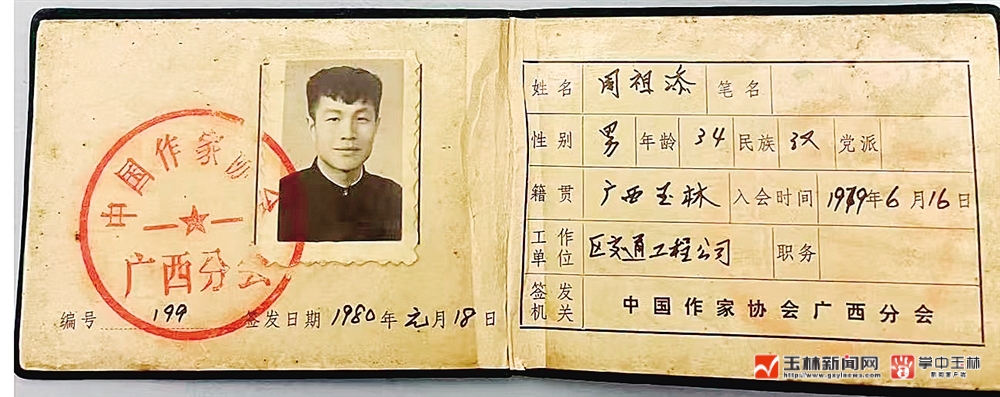 中国作家协会
广西分会
编号 199 签发日期 1980年元月18日
姓名 周祖添 笔名
性别 男 年龄 34 民族 汉 党派
籍贯 广西玉林 入会时间 1979年6月16日
工作单位 区交通工程公司 职务
签发机关 中国作家协会广西分会
玉林新闻网 掌中玉林
http://www.gxylnews.com 新闻客户端